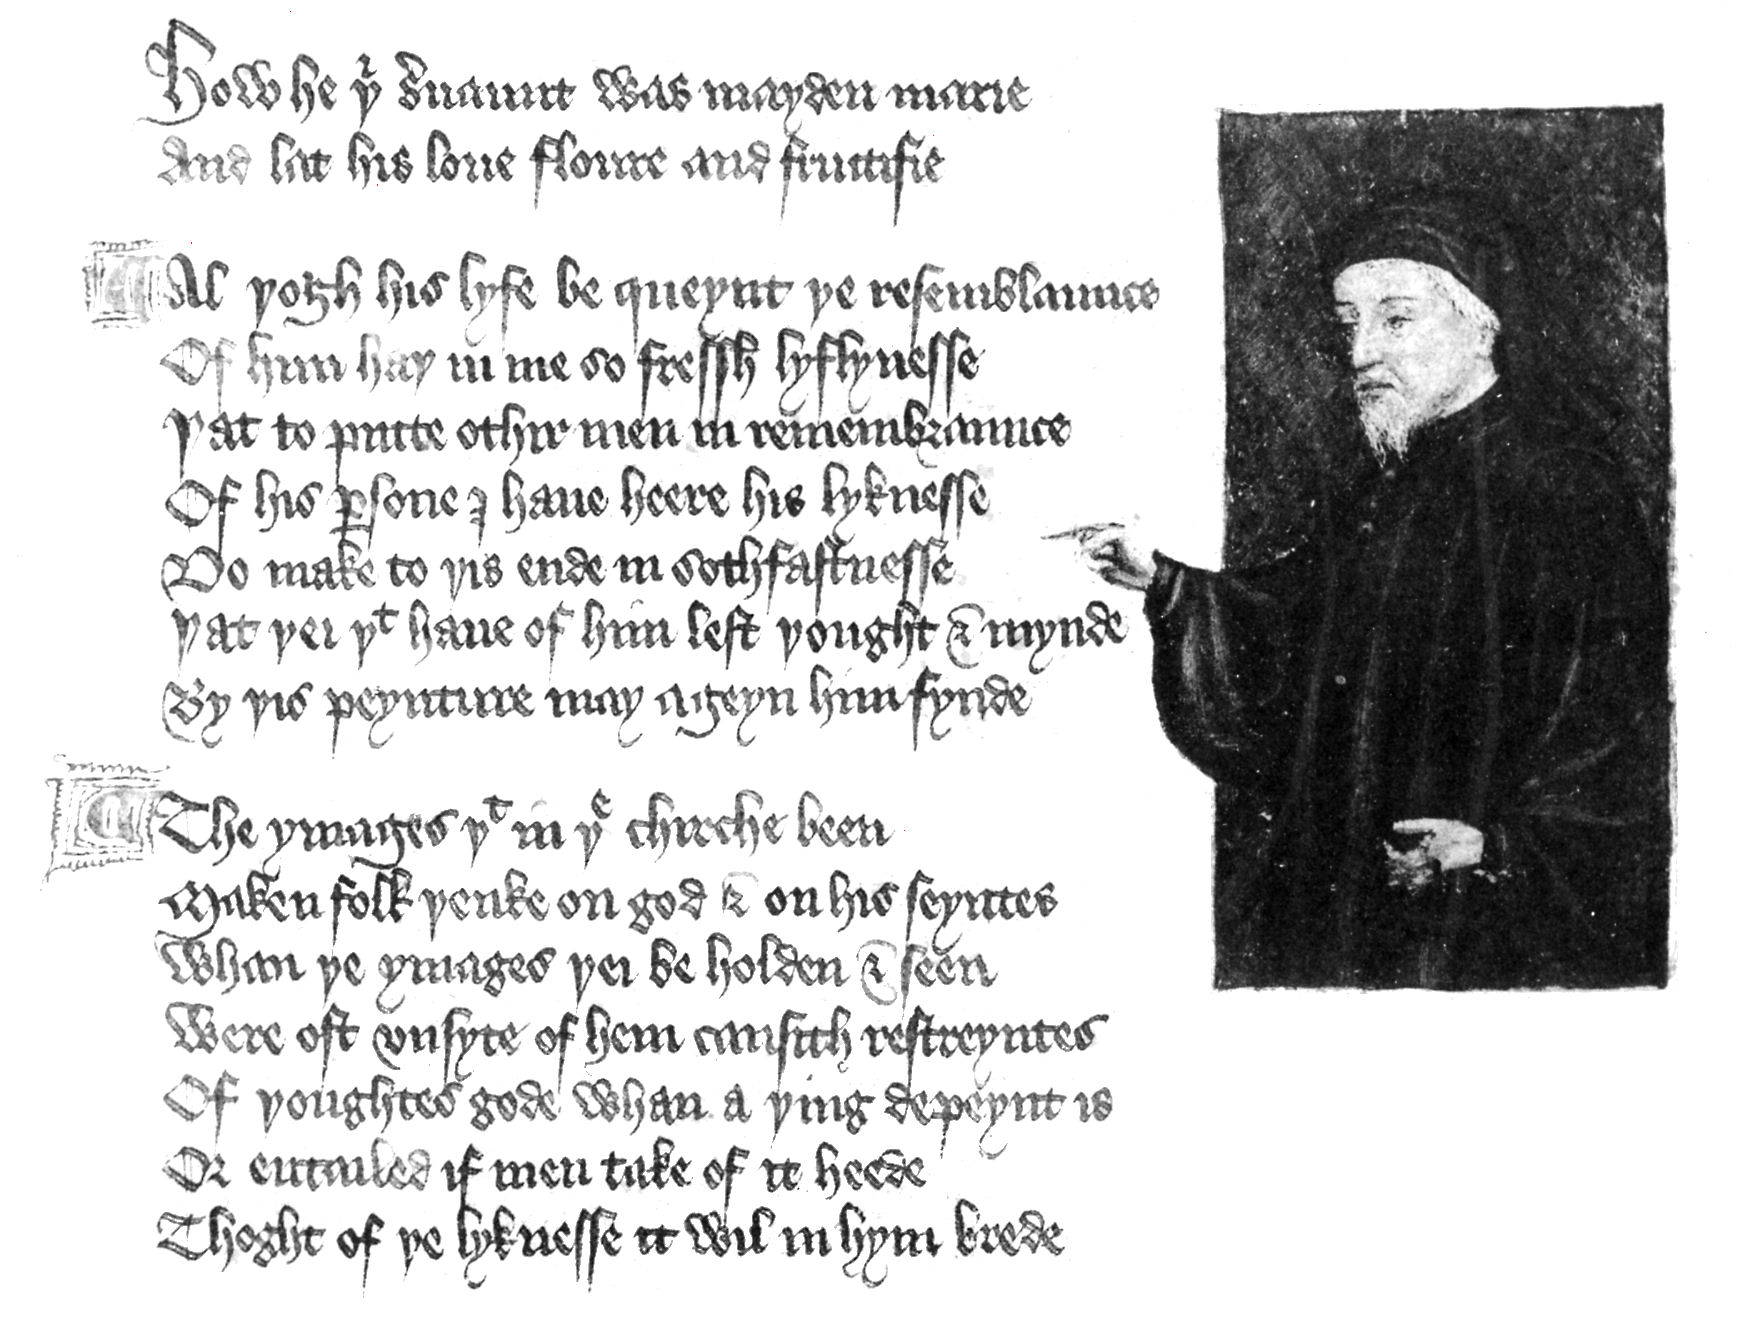 How he þⁱ s̉uaunt was mayden marie
And lat his loue floure and fructifie
Al þogh his lyfe be queynt þe resemblaunce
Of him haþ in me so fressh lyflynesse
Þat to putte othir men in remembraunce
Of his ꝑsone I haue heere his lyknesse
Do make to þis ende in sothfastnesse
Þat þei þᵗ haue of him left þought & mynde
By þis peynture may ageyn him fynde
The ymages þᵗ in þᵉ chirche been
Maken folk þenke on god & on his seyntes
Whan þe ymages þei be holden & seen
Were oft vnsyte of hem causith restreyntes
Of þoughtes gode whan a þing depeynt is
Or entailed if men take of it heede
Thoght of þe lyknesse it wil in hym brede